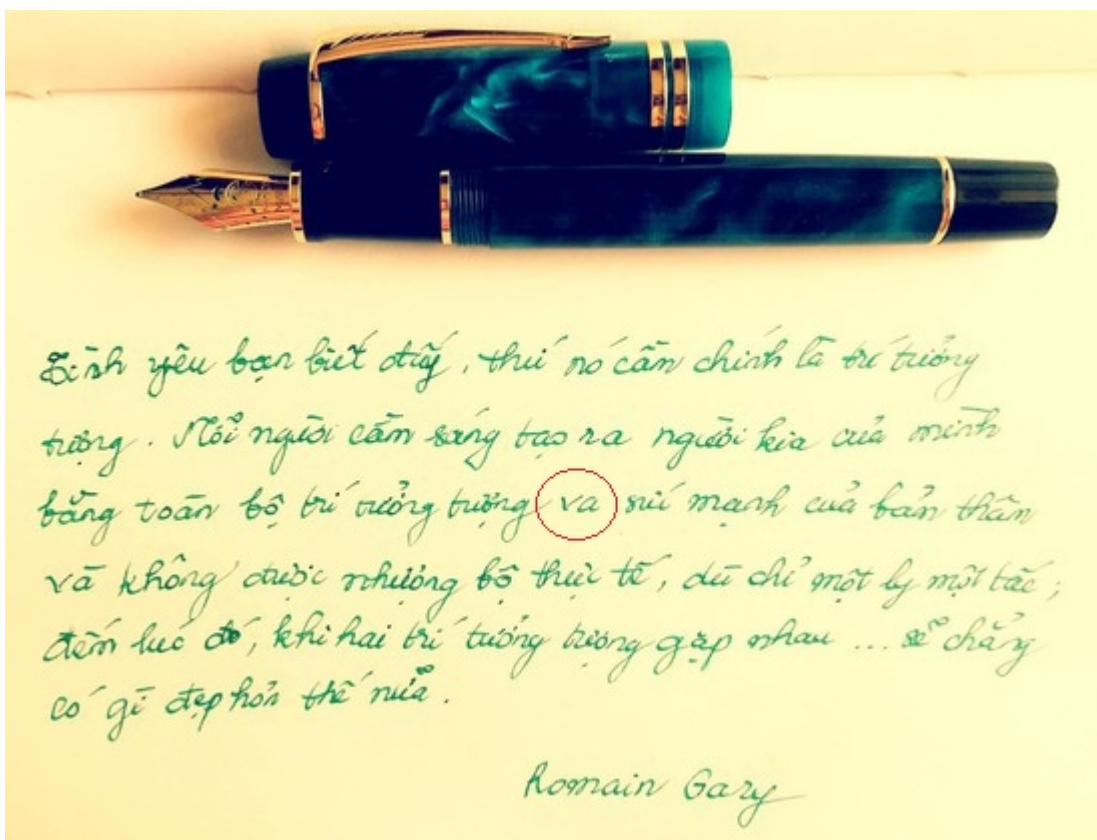 Tình yêu bạn biết đấy, thứ nó cần chính là trí tưởng
tượng. Mỗi người cần sáng tạo ra người kia của mình
bằng toàn bộ trí tưởng tượng va sức mạnh của bản thân
và không được nhượng bộ thực tế, dù chỉ một ly một tấc;
đến lúc đó, khi hai trí tưởng tượng gặp nhau ... sẽ chẳng
có gì đẹp hơn thế nữa.
Romain Gary